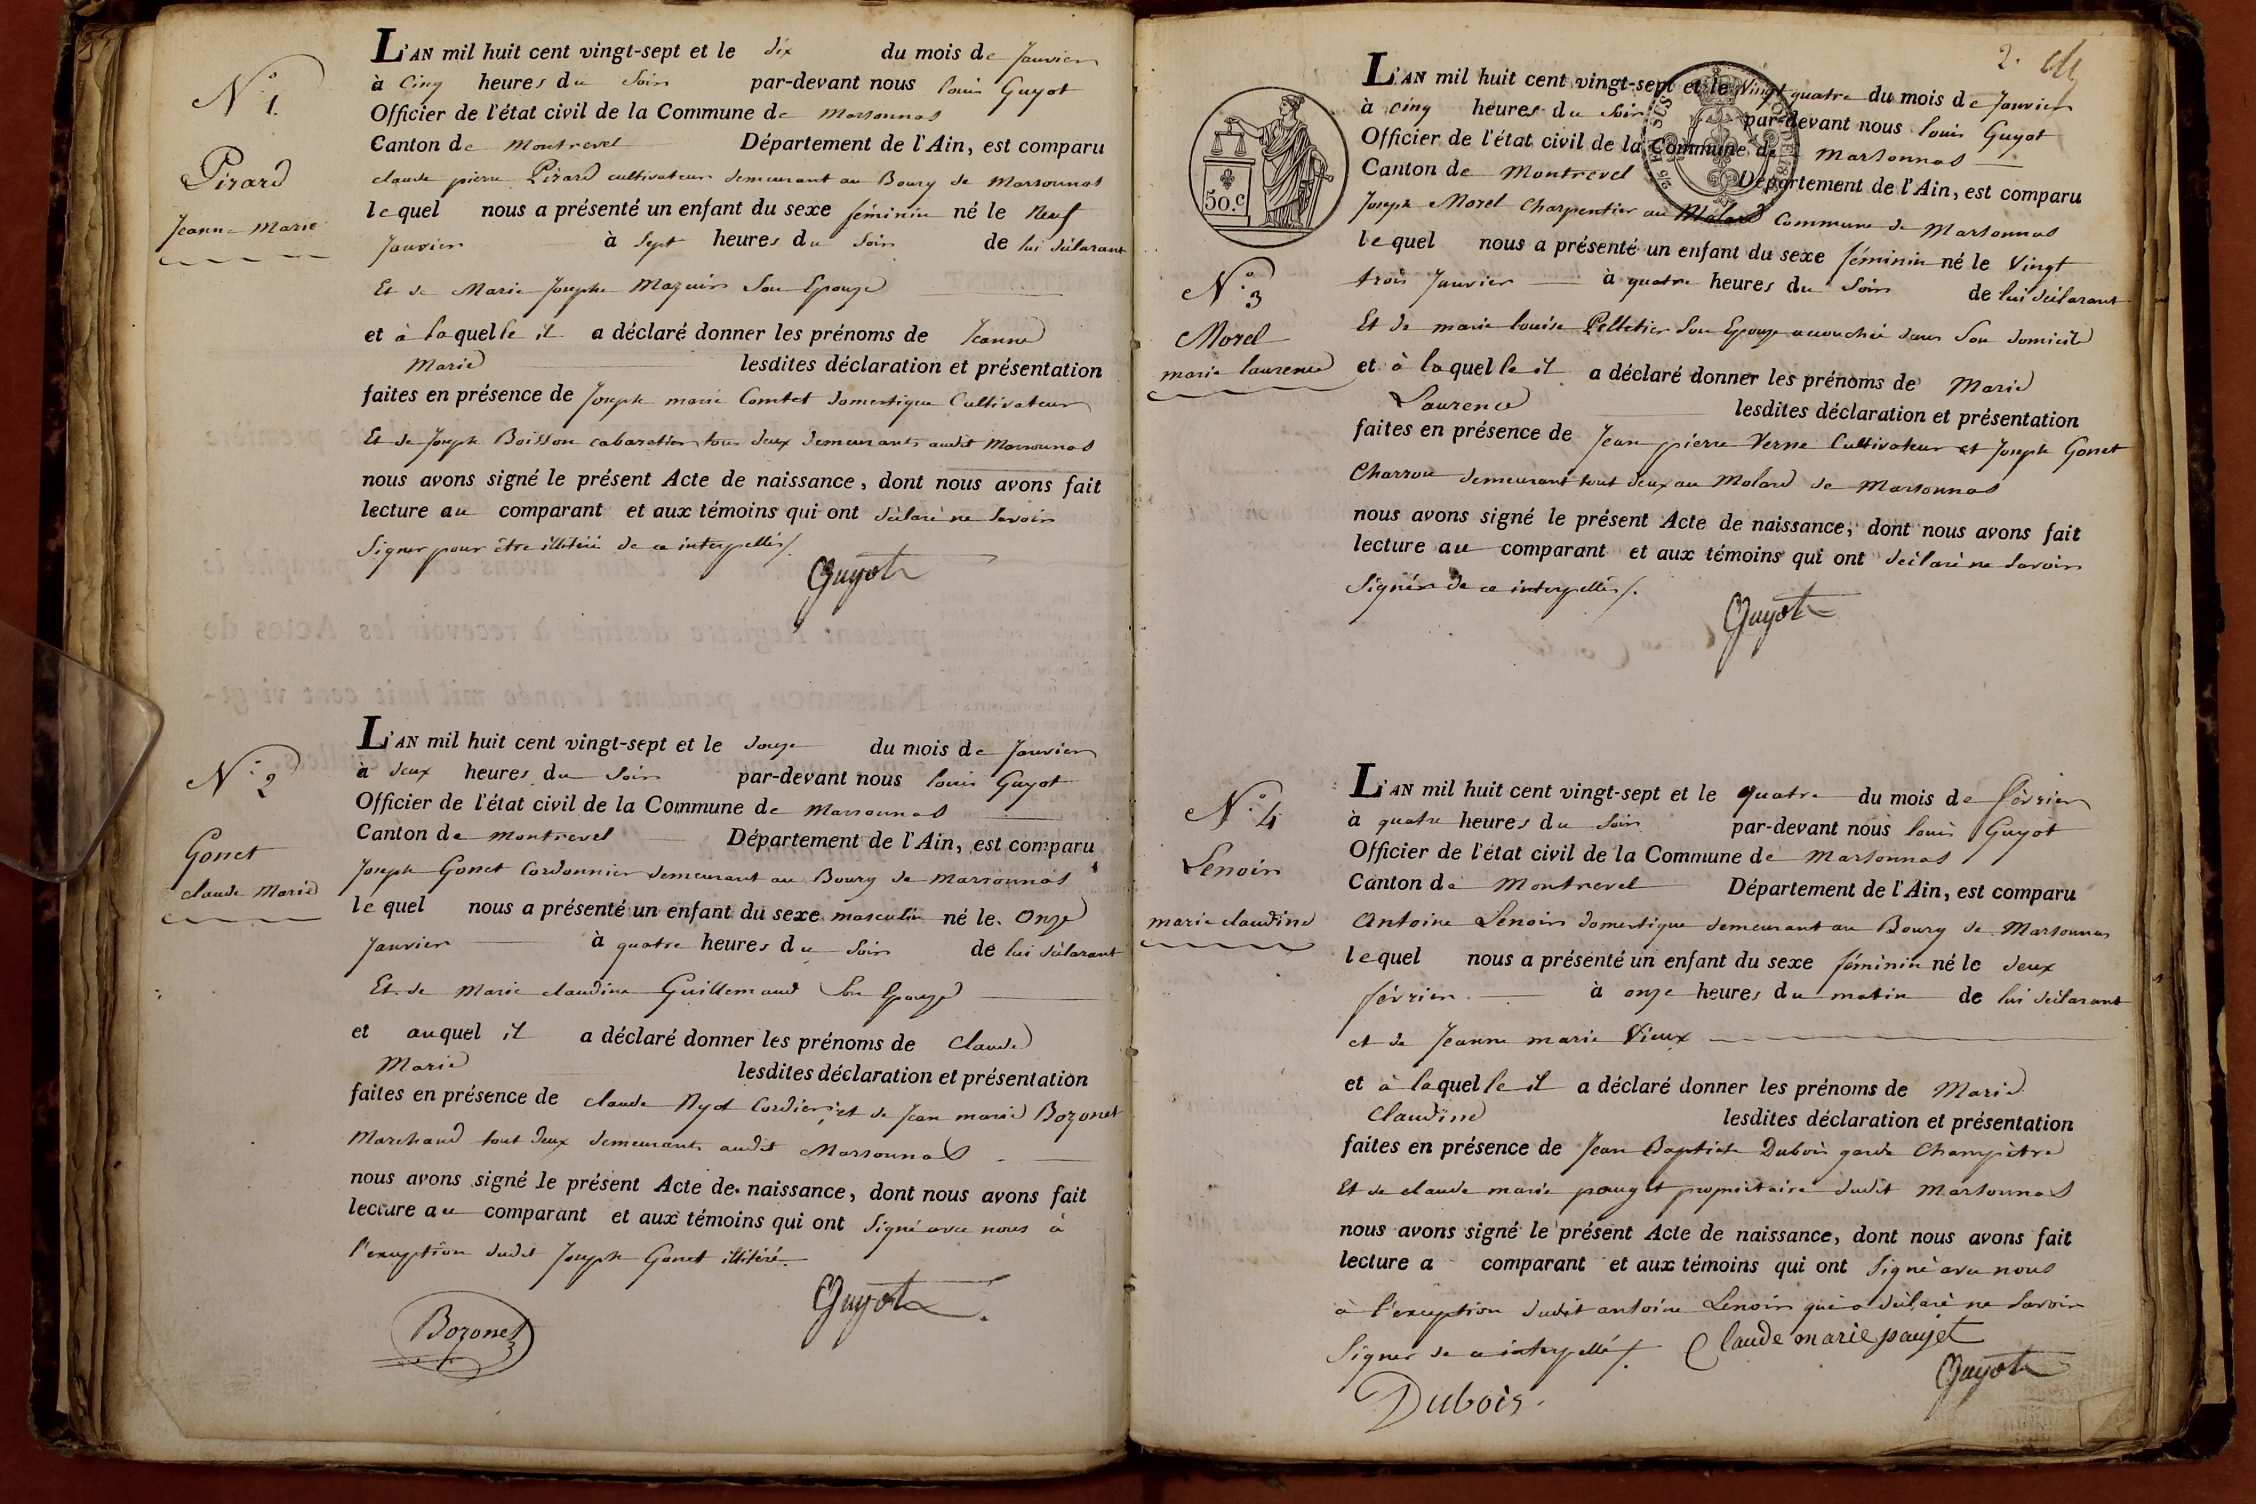 N° 1.
Pirard
Jeanne Marie
L'AN mil huit cent vingt-sept et le dix du mois de Janvier
à Cinq heures du Soir par-devant nous louis Guyot
Officier de l'état civil de la Commune de Marsonnas
Canton de Montrevel Département de l'Ain, est comparu
claude pierre Pirard cultivateur demeurant au Bourg de Marsonnas
lequel nous a présenté un enfant du sexe féminin né le Neuf
Janvier à Sept heures du Soir de lui déclarant
Et de Marie Josephe Mazuir Son Epouze
et à laquelle il a déclaré donner les prénoms de Jeanne
Marie lesdites déclaration et présentation
faites en présence de Joseph marie Comtet domestique Cultivateur
Et de Joseph Boisson cabaretier tous deux demeurants audit Marsonnas
nous avons signé le présent Acte de naissance, dont nous avons fait
lecture au comparant et aux témoins qui ont déclaré ne Savoir
Signer pour être illitéré de ce interpellés/.
Guyot
N° 2
Gonet
claude Marie
L'AN mil huit cent vingt-sept et le douze du mois de Janvier
à deux heures du Soir par-devant nous louis Guyot
Officier de l'état civil de la Commune de Marsonnas
Canton de Montrevel Département de l'Ain, est comparu
Joseph Gonet Cordonnier demeurant au Bourg de Marsonnas
lequel nous a présenté un enfant du sexe masculin né le Onze
Janvier à quatre heures du Soir de lui déclarant
Et de Marie claudine Guillemaud Son Epouze
et auquel il a déclaré donner les prénoms de Claude
Marie lesdites déclaration et présentation
faites en présence de claude Nyot Cordier et de Jean marie Bozonet
Marchand tout deux demeurants audit Marsonnas
nous avons signé le présent Acte de naissance, dont nous avons fait
lecture au comparant et aux témoins qui ont Signé avec nous à
l'exception dudit Joseph Gonet illitéré.
Bozonet
Guyot
2.
50.c
N° 3
Morel
marie laurence
L'AN mil huit cent vingt-sept et le Vingt quatre du mois de Janvier
à cinq heures du Soir par-devant nous louis Guyot
Officier de l'état civil de la Commune de Marsonnas
Canton de Montrevel Département de l'Ain, est comparu
Joseph Morel Charpentier au Molard Commune de Marsonnas
lequel nous a présenté un enfant du sexe féminin né le Vingt
trois Janvier à quatre heures du Soir de lui déclarant
Et de marie louise Pelletier Son Epouze accouchée dans Son domicile
et à laquelle il a déclaré donner les prénoms de Marie
Laurence lesdites déclaration et présentation
faites en présence de Jean pierre Verne Cultivateur et Joseph Gonet
Charron demeurant tout deux au Molard de Marsonnas
nous avons signé le présent Acte de naissance, dont nous avons fait
lecture au comparant et aux témoins qui ont déclaré ne Savoir
Signer de ce interpellés/.
Guyot
N° 4
Lenoir
marie claudine
L'AN mil huit cent vingt-sept et le quatre du mois de février
à quatre heures du Soir par-devant nous louis Guyot
Officier de l'état civil de la Commune de Marsonnas
Canton de Montrevel Département de l'Ain, est comparu
Antoine Lenoir domestique demeurant au Bourg de Marsonnas
lequel nous a présenté un enfant du sexe féminin né le deux
février à onze heures du matin de lui déclarant
et de Jeanne marie Vieux
et à laquelle il a déclaré donner les prénoms de Marie
Claudine lesdites déclaration et présentation
faites en présence de Jean Baptiste Dubois garde Champètre
Et de claude marie pauget propriétaire dudit Marsonnas
nous avons signé le présent Acte de naissance, dont nous avons fait
lecture a comparant et aux témoins qui ont Signé avec nous
à l'exception dudit antoine Lenoir qui a déclaré ne Savoir
Signer de ce interpellé/. Claude marie paujet
Guyot
Dubois.